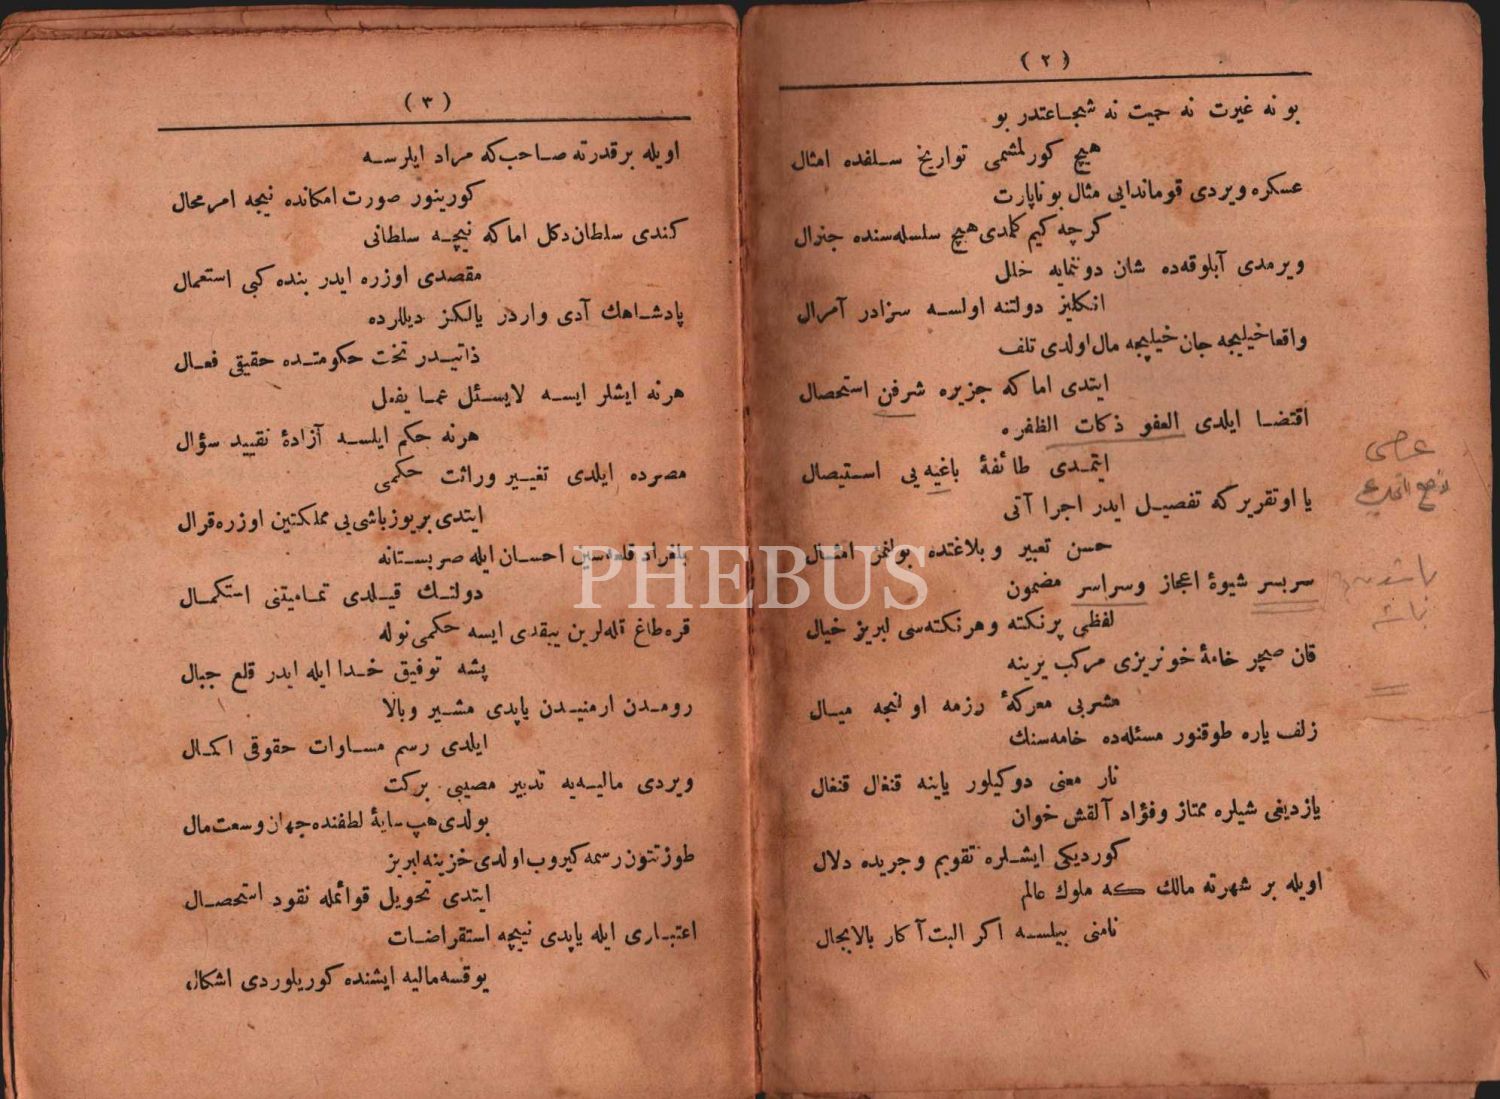 ( ٢ )
بو نه غيرت نه حميت نه شجاعتدر بو
هيچ كورلمشمى تواريخ سلفده امثال
عسكره ويردى قوماندايى مثال بوناپارت
كرچه كيم كلمدى هيچ سلسله‌سنده جنرال
ويرمدى آبلوقه‌ده شان دوننمايه خلل
انكليز دولتنه اولسه سزادر آمرال
واقعا خيليجه جان خيليجه مال اولدى تلف
ايتدى اما كه جزيره شرفن استحصال
اقتضا ايلدى العفو ذكات الظفره
ايتمدى طائفهٔ باغيه‌يى استيصال
يا او تقرير كه تفصيل ايدر اجرا آتى
حسن تعبير و بلاغتده بولنمز امثال
سربسر شيوهٔ اعجاز وسراسر مضمون
لفظى پرنكته و هر نكته‌سى لبريز خيال
قان صچر خامهٔ خونريزى مركب يرينه
مشربى معركهٔ رزمه او نيجه ميال
زلف ياره طوقنور مسئله‌ده خامه‌سنك
نار معنى دوكيلور ياينه قنغال قنغال
يازديغى شيلره ممتاز وفؤاد آلقش خوان
كورديكى ايشلره تقويم و جريده دلال
اويله بر شهرته مالك كه ملوك عالم
نامنى بيلسه اكر البت آكار بالاجلال
PHEBUS
( ٣ )
اويله بر قدرته صاحب كه مراد ايلرسه
كورينور صورت امكانده نيجه امر محال
كندى سلطان دكل اما كه نيچه سلطانى
مقصدى اوزره ايدر بنده كبى استعمال
پادشاهك آدى واردر يالكز ديللرده
ذاتيدر تخت حكومتده حقيقى فعال
هرنه ايشلر ايسه لايسئل عما يفعل
هرنه حكم ايلسه آزادهٔ تقييد سؤال
مصرده ايلدى تغيير وراثت حكمى
ايتدى بريوزباشى‌يى مملكتين اوزره قرال
بلغراد قلعه‌سين احسان ايله صربستانه
دولتك قيلدى تماميتنى استكمال
قره‌طاغ قله‌لرين ييقدى ايسه حكمى نوله
پشه توفيق خدا ايله ايدر قلع جبال
رومدن ارمنيدن ياپدى مشير وبالا
ايلدى رسم مساوات حقوقى اكمال
ويردى ماليه‌يه تدبير مصيبى بركت
بولدى هپ سايهٔ لطفنده جهان وسعت مال
طوز تتون رسمه كيروب اولدى خزينه لبريز
ايتدى تحويل قوائمله نقود استحصال
اعتبارى ايله ياپدى نيچه استقراضات
يوقسه ماليه ايشنده كوريلوردى اشكال